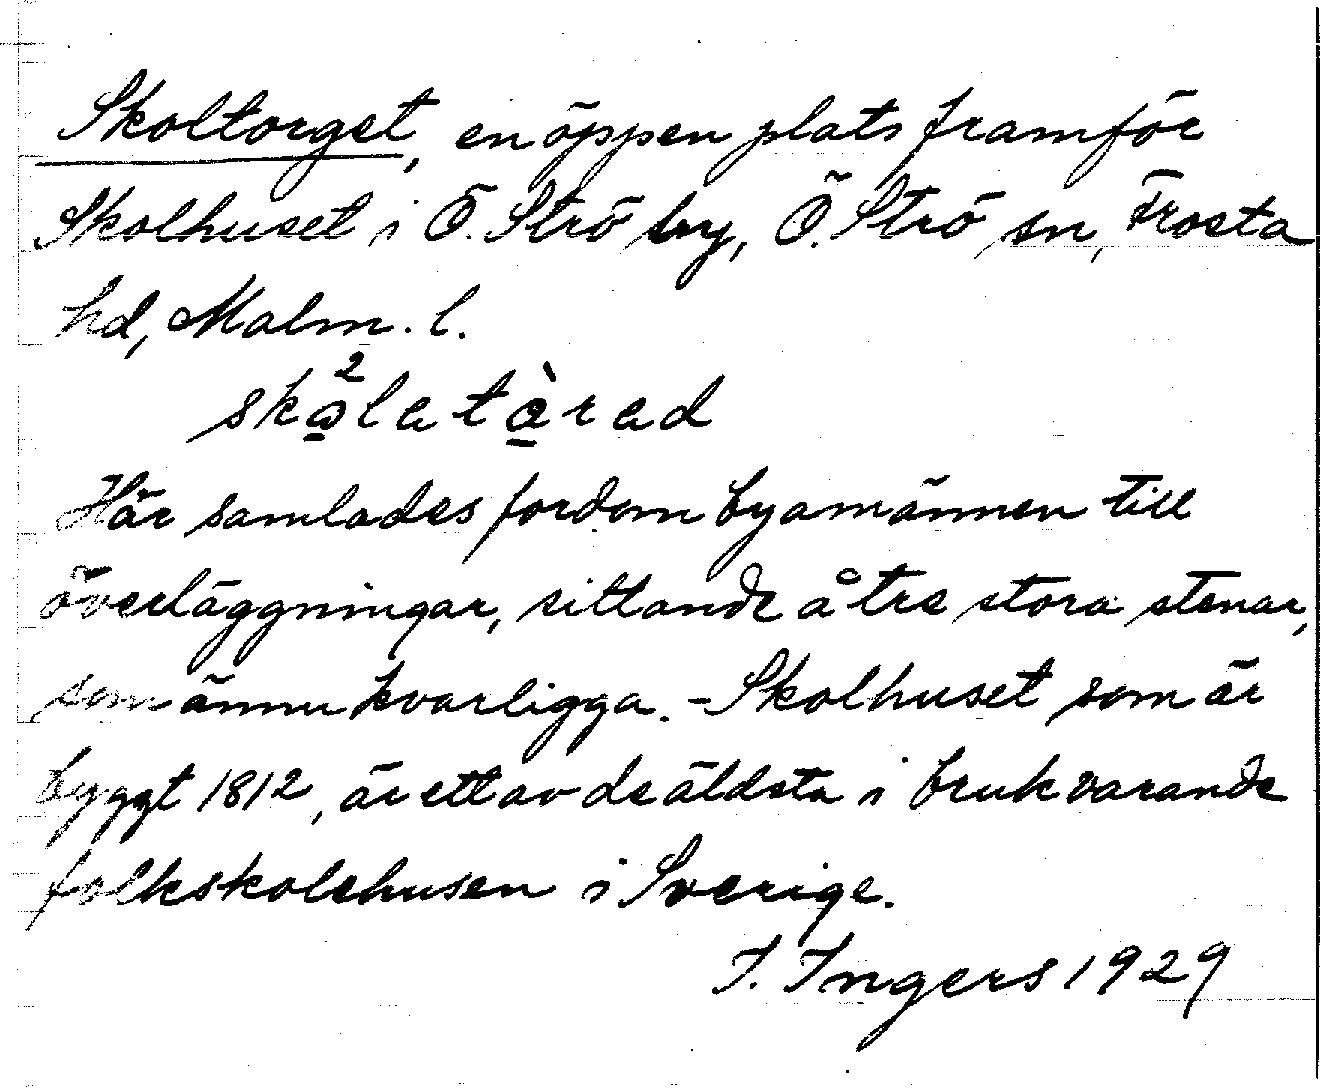 Skoltorget, en öppen plats framför
Skolhuset i Ö. Strö by, Ö. Strö sn, Frosta
hd, Malm. l.
Här samlades fordom byamännen till
överläggningar, sittande å tre stora stenar,
som ännu kvarligga. - Skolhuset som är
byggt 1812, är ett av de äldsta i bruk varande
folkskolehusen i Sverige.
I. Ingers 1929